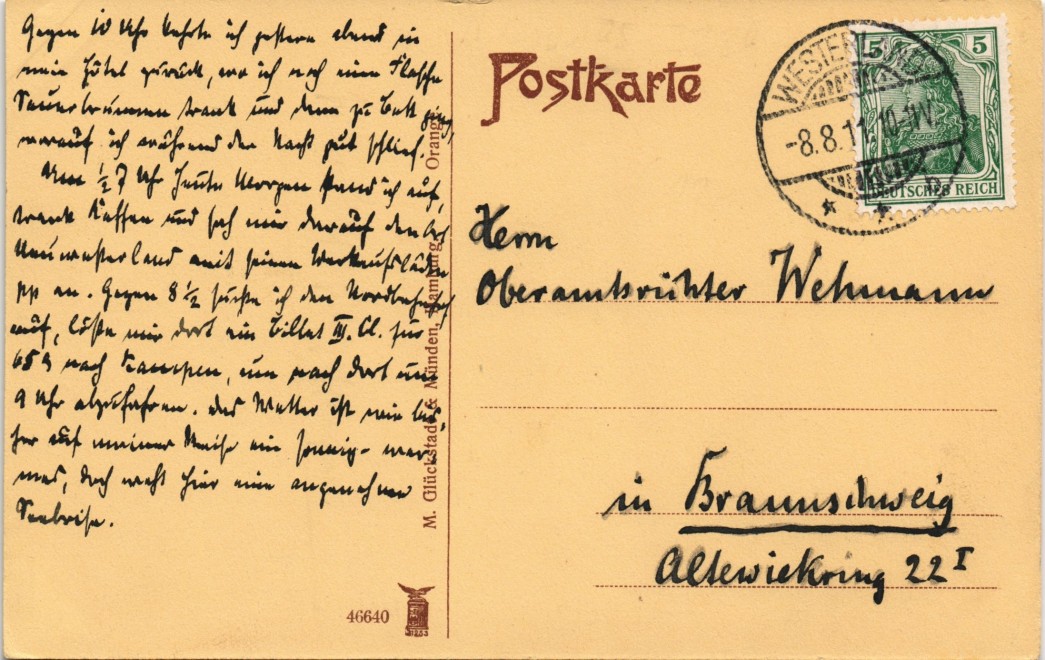 Gegen 10 Uhr kehrte ich gestern abend in
mein Hotel zurück, wo ich noch eine Flasche
Sauerbrunnen trank und dann zu Bett ging,
worauf ich während der Nacht gut schlief.
Um ½7 Uhr heute Morgen stand ich auf,
trank Kaffee und sah mir darauf den Ort
Neuwesterland mit seinen Verkaufsläden
pp an. Gegen 8½ suchte ich den Nordbahnhof
auf, löste mir dort ein Billet III. Cl. für
65 nach Kampen, um nach dort um
9 Uhr abzufahren. Das Wetter ist wie bis-
her auf meiner Reise ein sonnig-war-
mes, doch weht hier eine angenehme
Seebrise.
M. Glückstadt & Münden, Hamburg
Orange
46640
Postkarte
WESTERLAND
-8.8.11. 10-11V.
5 5
DEUTSCHES REICH
Herrn
Oberamtsrichter Wehmann
in Braunschweig
Altewiekring 22 I